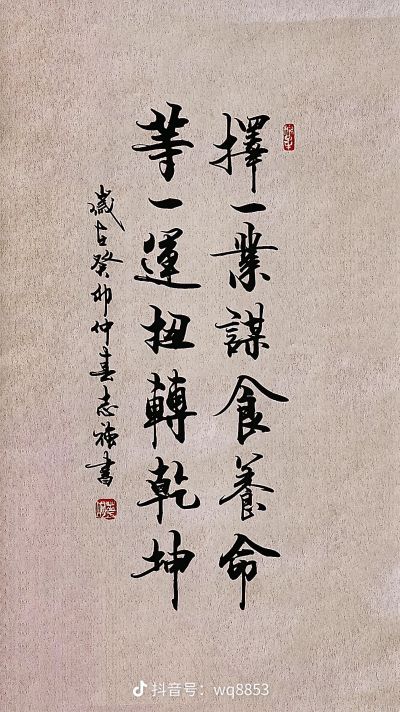 擇一業謀食養命
等一運扭轉乾坤
歲在癸卯仲春志強書
抖音号：wq8853